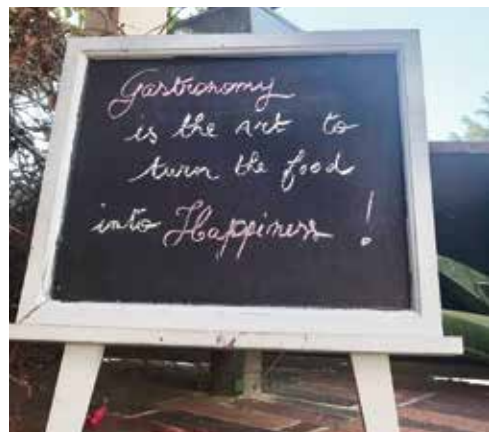 Gastronomy
is the art to
turn the food
into Happiness !